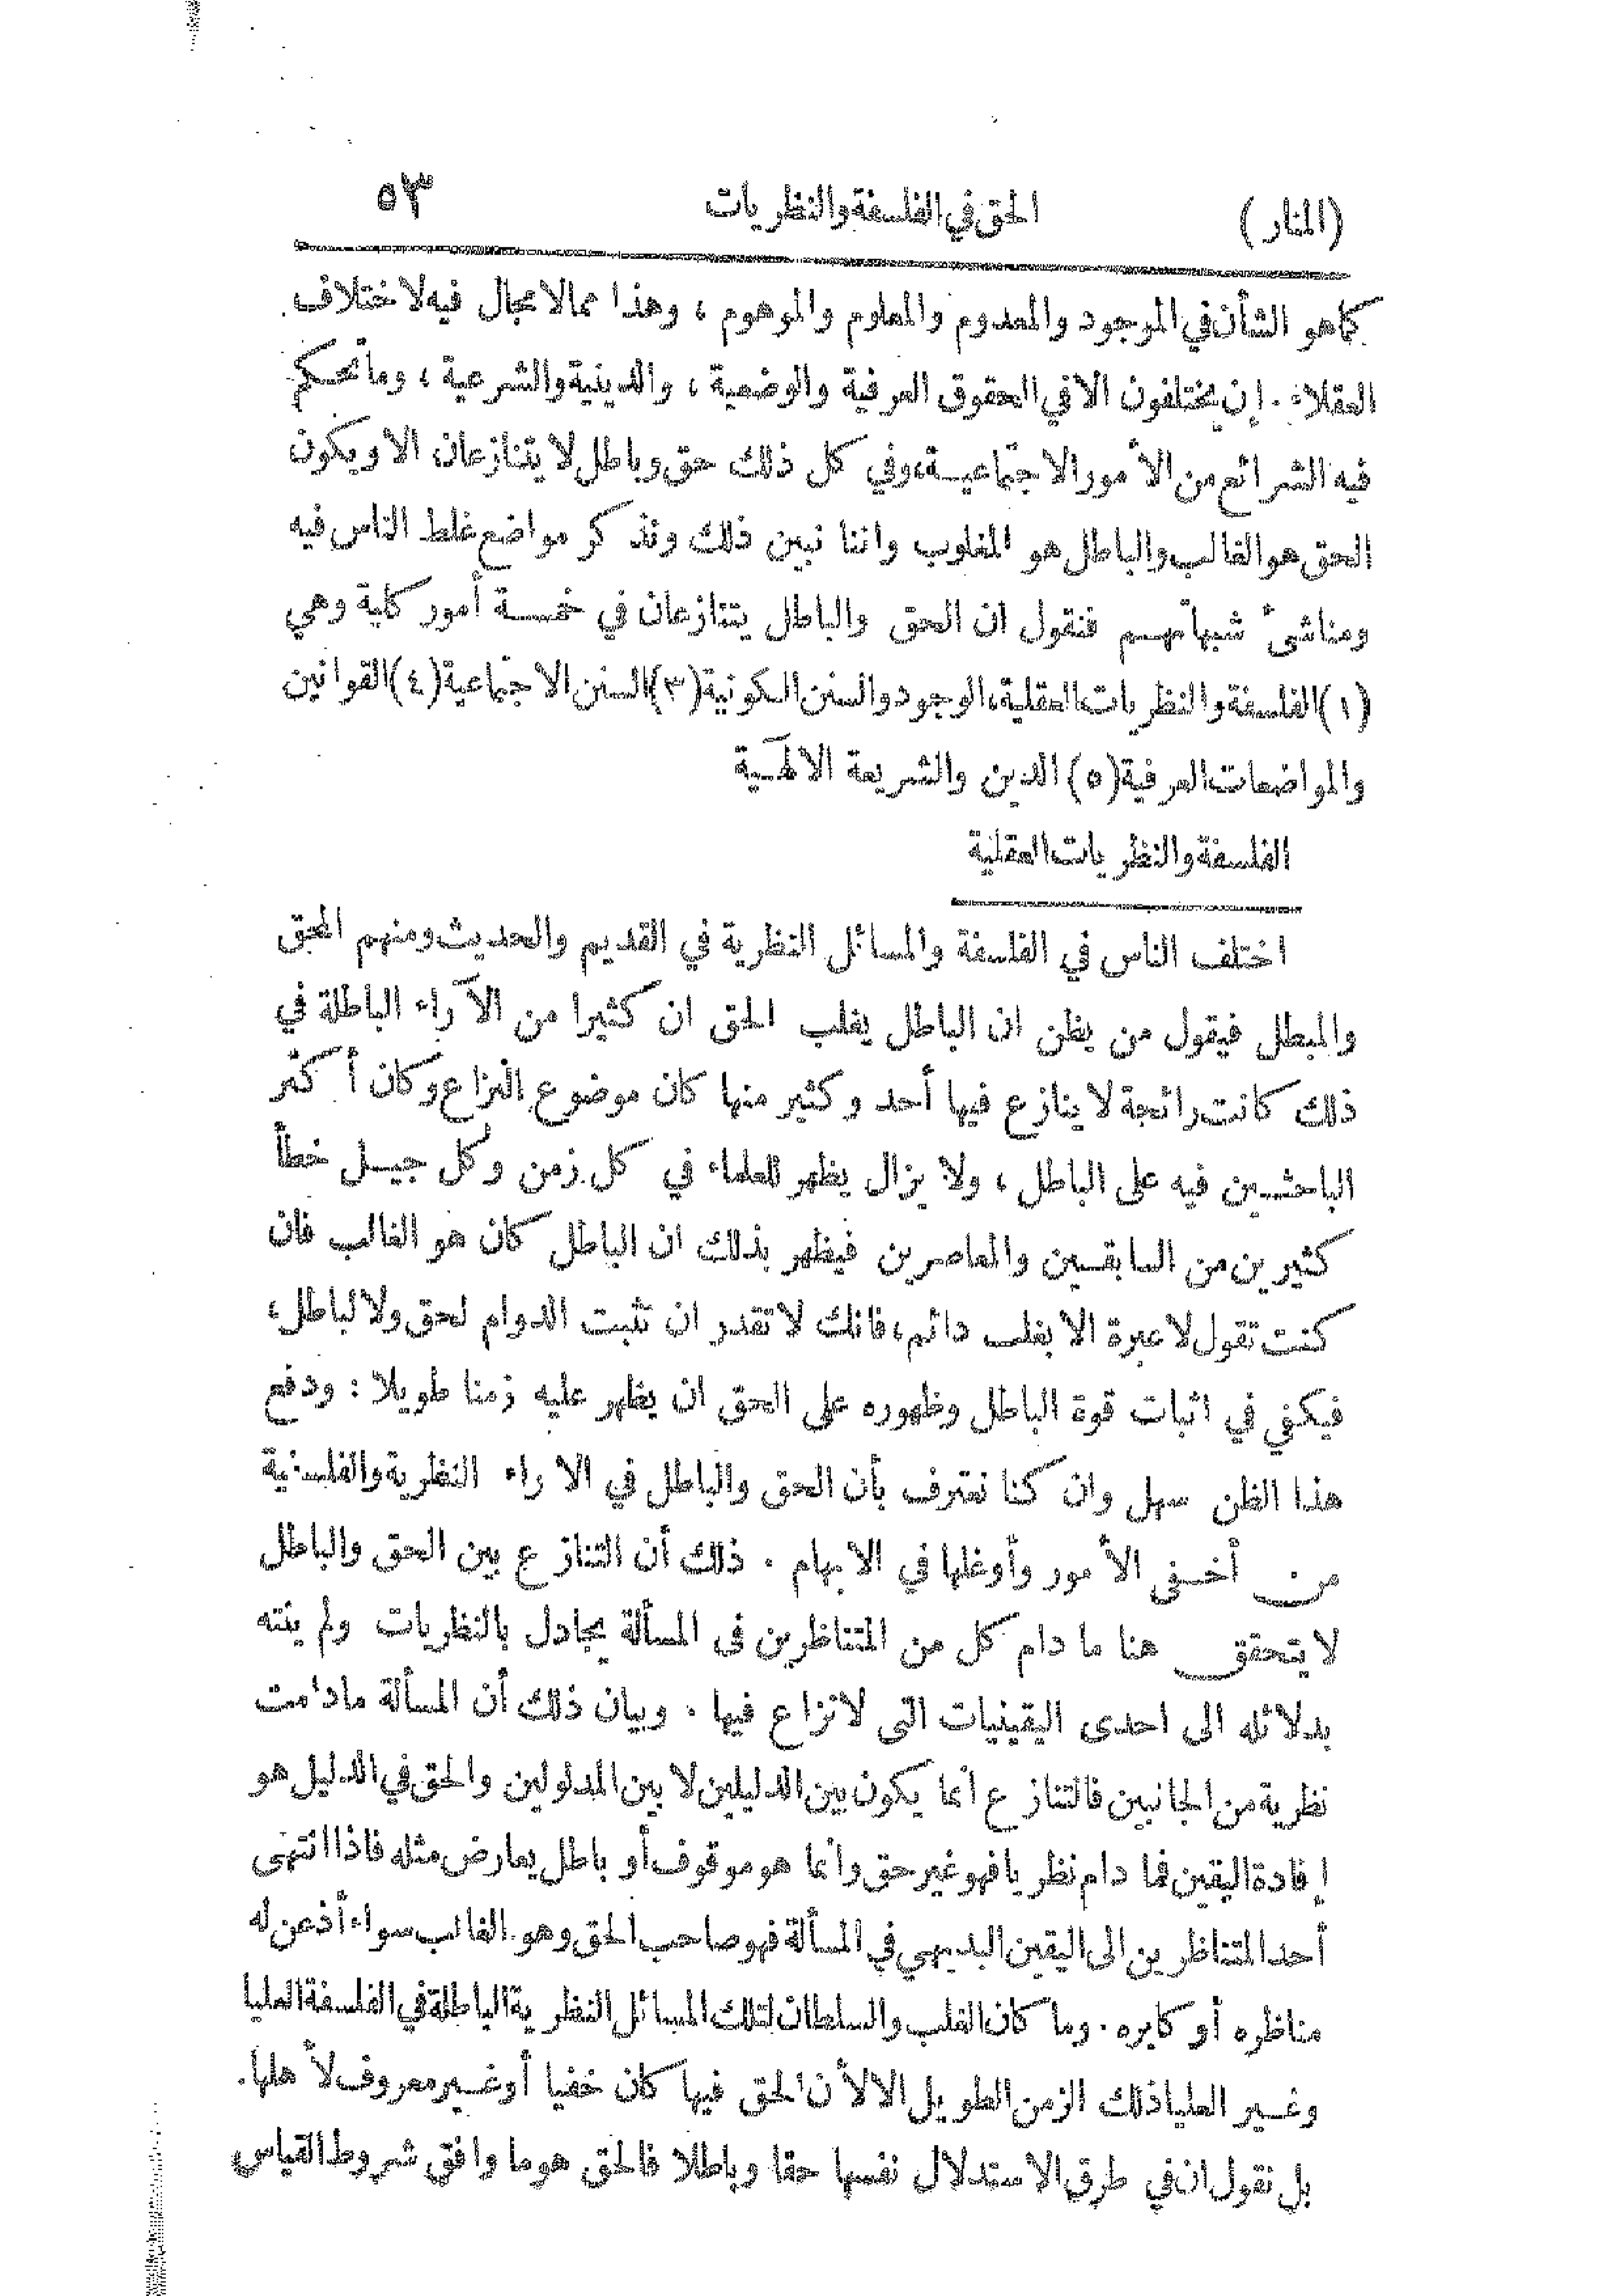 (المنار) الحق في الفلسفة والنظريات ٥٣
كما هو الشأن في الموجود والمعدوم والمعلوم والموهوم ، وهذا مما لا مجال فيه لاختلاف
العقلاء . إن يختلفون الا في الحقوق العرفية والوضعية ، والدينية والشرعية ، وما تحكم
فيه الشرائع من الأمور الاجتماعية، وفي كل ذلك حق وباطل لا يتنازعان الا ويكون
الحق هو الغالب والباطل هو المغلوب واننا نبين ذلك ونذكر مواضع غلط الناس فيه
ومناشئ شبهاتهم فنقول ان الحق والباطل يتنازعان في خمسة أمور كلية وهي
(١) الفلسفة والنظريات العقلية، الوجود والسنن الكونية (٣) السنن الاجتماعية (٤) القوانين
والمواضعات العرفية (٥) الدين والشريعة الالهية
الفلسفة والنظريات العقلية
اختلف الناس في الفلسفة والمسائل النظرية في القديم والحديث ومنهم المحق
والمبطل فيقول من يظن ان الباطل يغلب الحق ان كثيرا من الآراء الباطلة في
ذلك كانت رائجة لا ينازع فيها أحد وكثير منها كان موضوع النزاع وكان أكثر
الباحثين فيه على الباطل ، ولا يزال يظهر للعلماء في كل زمن وكل جيل خطأ
كثيرين من السابقين والمعاصرين فيظهر بذلك ان الباطل كان هو الغالب فان
كنت تقول لا عبرة الا بغلب دائم، فانك لا تقدر ان تثبت الدوام لحق ولا لباطل،
فيكفي في اثبات قوة الباطل وظهوره على الحق ان يظهر عليه زمنا طويلا : ودفع
هذا الظن سهل وان كنا نعترف بأن الحق والباطل في الاراء النظرية والفلسفية
من أخفى الأمور وأوغلها في الابهام . ذلك أن التنازع بين الحق والباطل
لا يتحقق هنا ما دام كل من المتناظرين في المسألة يجادل بالنظريات ولم ينته
بدلائله الى احدى اليقينيات التي لا نزاع فيها . وبيان ذلك أن المسألة ما دامت
نظرية من الجانبين فالتنازع انما يكون بين الدليلين لا بين المدلولين والحق في الدليل هو
إفادة اليقين فما دام نظريا فهو غير حق وانما هو موقوف أو باطل يعارض مثله فاذا انتهى
أحد المتناظرين الى اليقين البديهي في المسألة فهو صاحب الحق وهو الغالب سواء أذعن له
مناظره أو كابره . وما كان الغلب والسلطان لتلك المسائل النظرية الباطلة في الفلسفة العليا
وغير العليا ذلك الزمن الطويل الا لأن الحق فيها كان خفيا أو غير معروف لأهلها .
بل نقول ان في طرق الاستدلال نفسها حقا وباطلا فالحق هو ما وافق شروط القياس